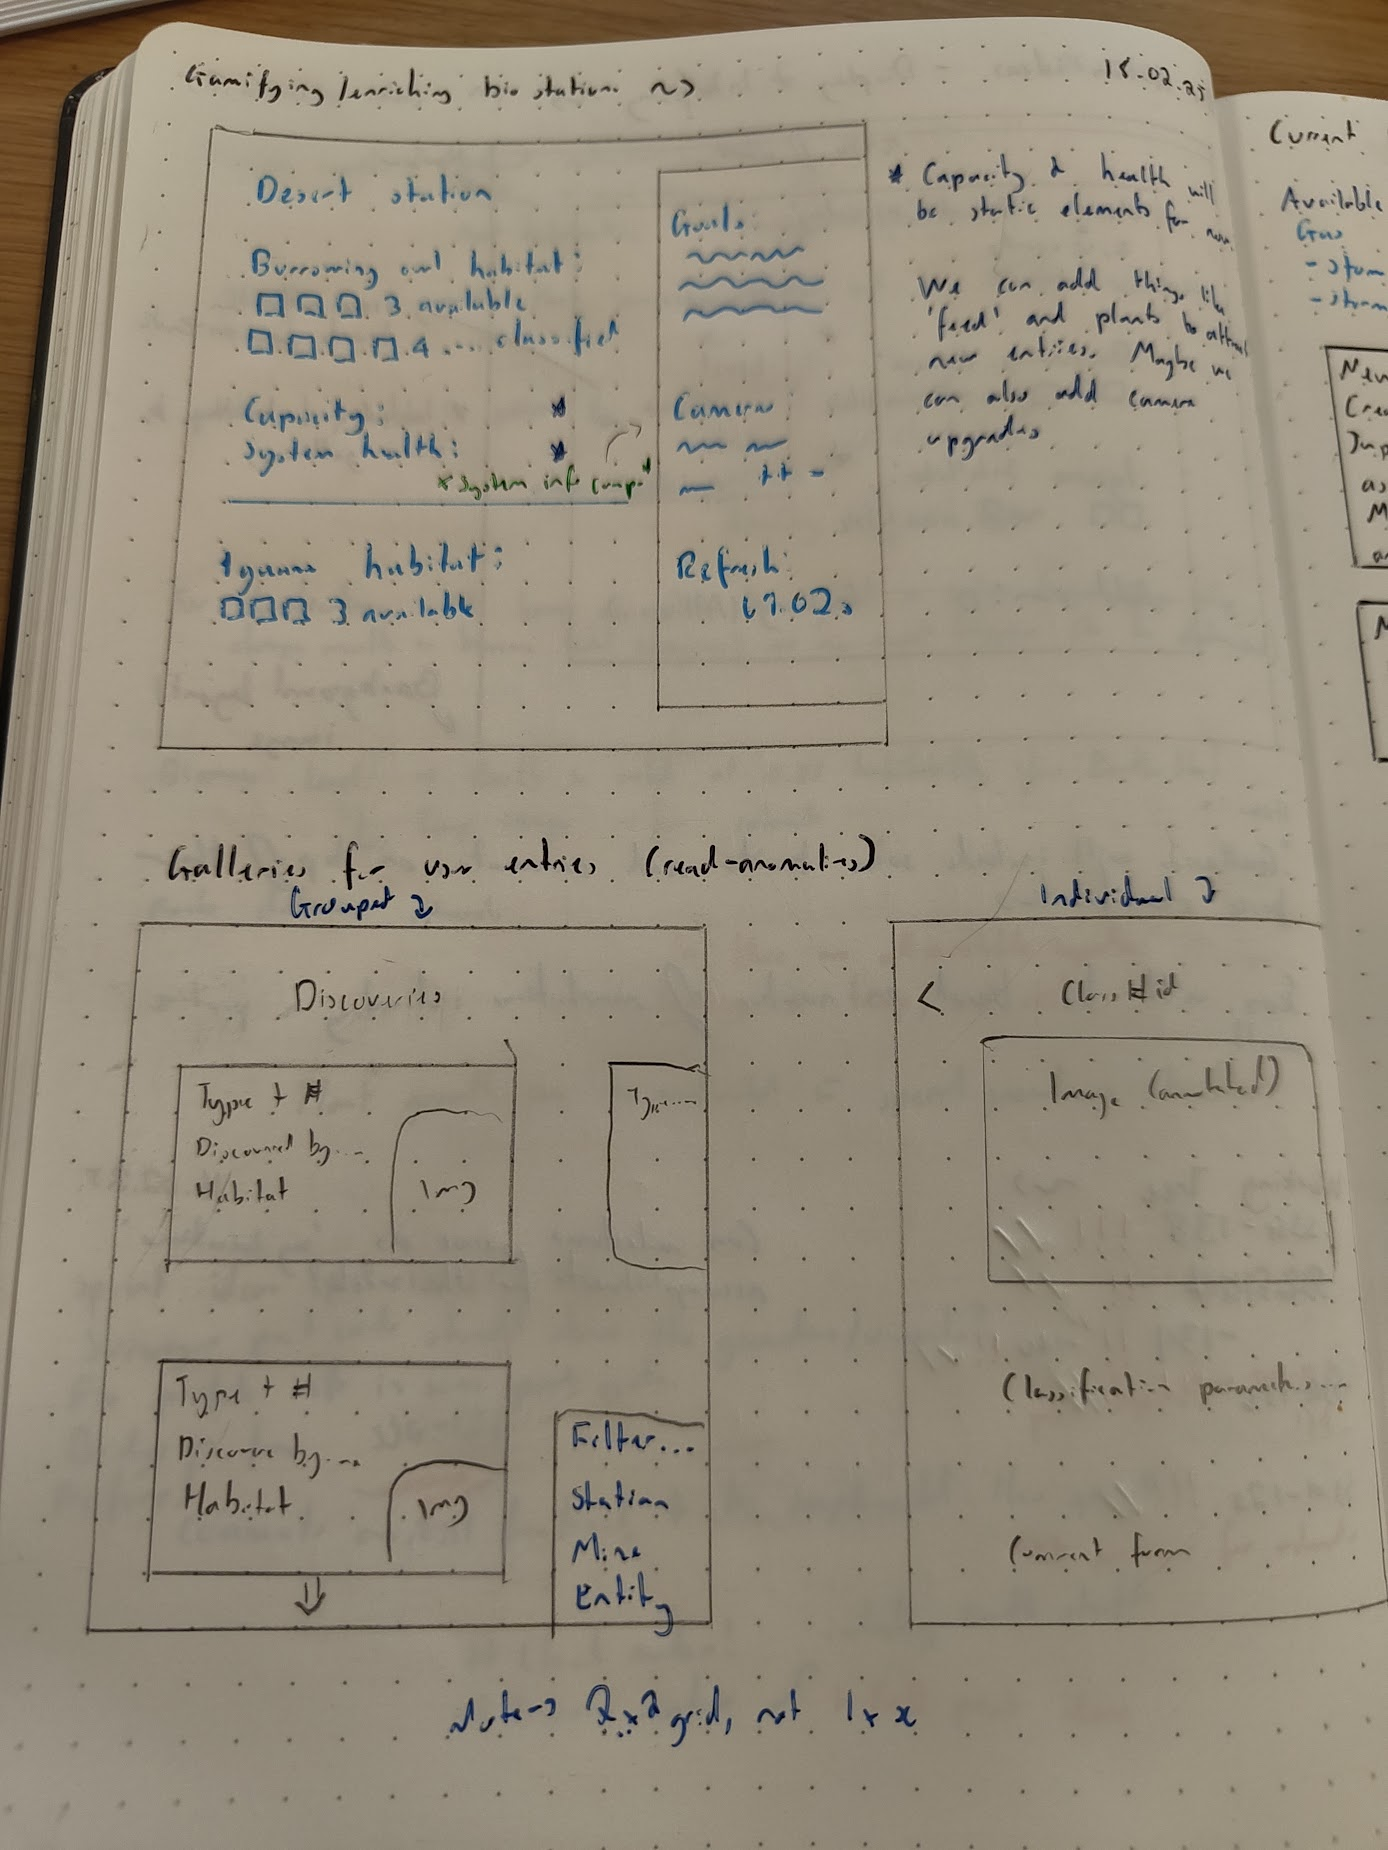 Gamifying/enriching bio stations ~>
18.02.25
Desert station
Burrowing owl habitat:
3 available
4 .... classified
Capacity: *
System health: *
* System info comp
Iguana habitat:
3 available
Goals:
Camera:
Refresh:
* Capacity & health will
be static elements for now
We can add things like
'feed' and plants to attract
new entries. Maybe we
can also add camera
upgrades
Galleries for user entries (read-anomalies)
Grouped
Discoveries
Type + #
Discovered by...
Habitat
Img
Type + #
Discover by....
Habitat
Img
Filter...
Station
Mine
Entity
Individual
< Class # id
Image (annotated)
Classification parameters...
Comment form
Note -> 2x2 grid, not 1x x
Current
Available
Gas